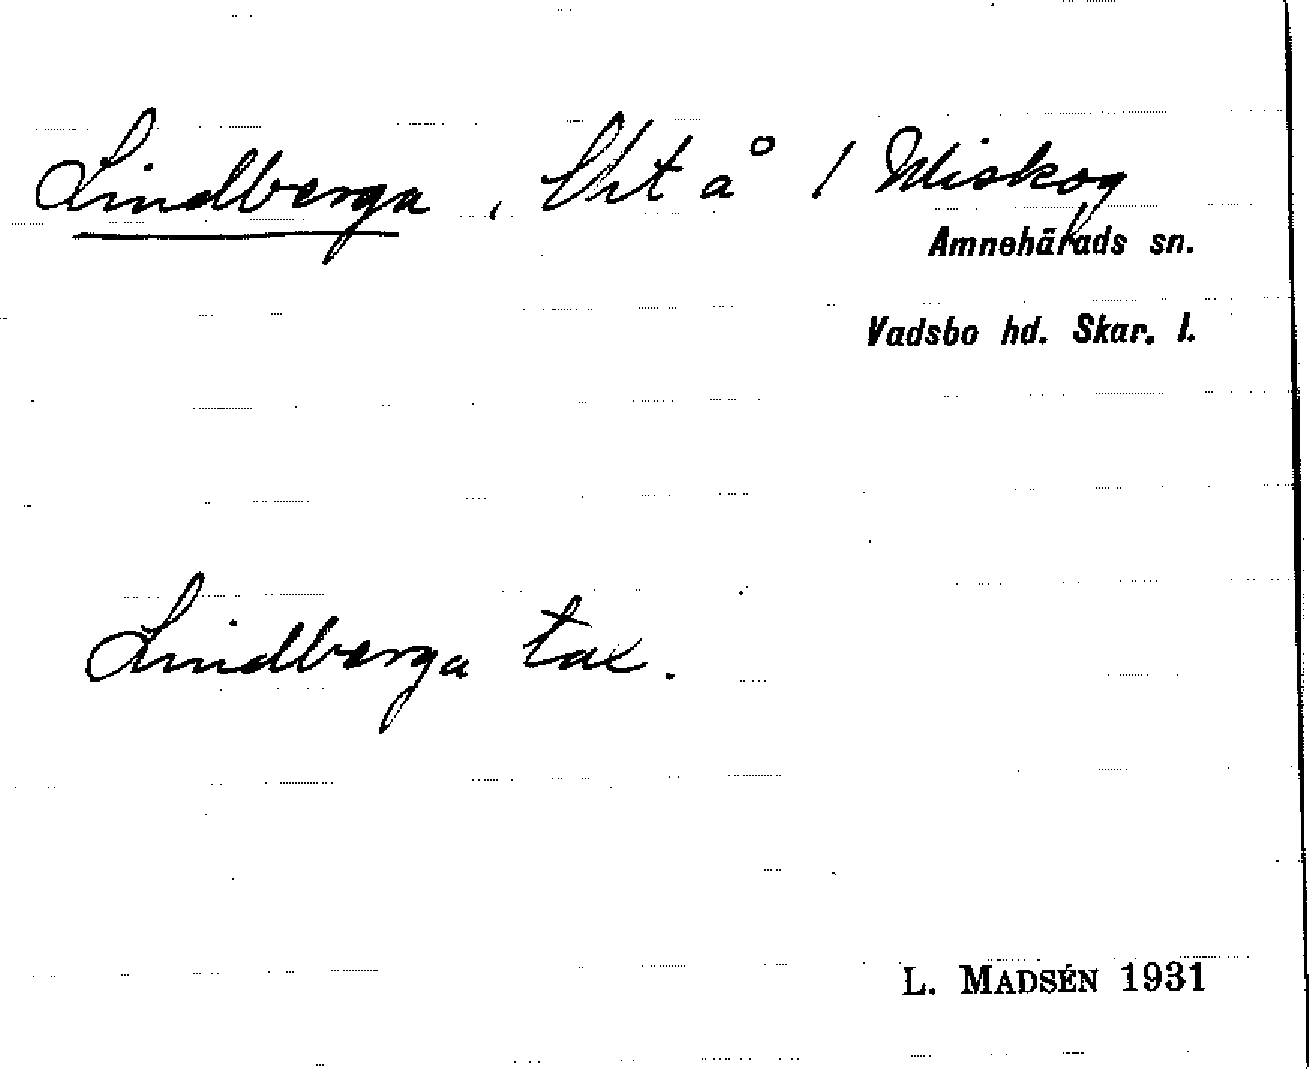 Lindberga, lht å 1 Miskog
Amnehärads sn.
Vadsbo hd. Skar. l.
Lindberga tax.
L. MADSÉN 1931